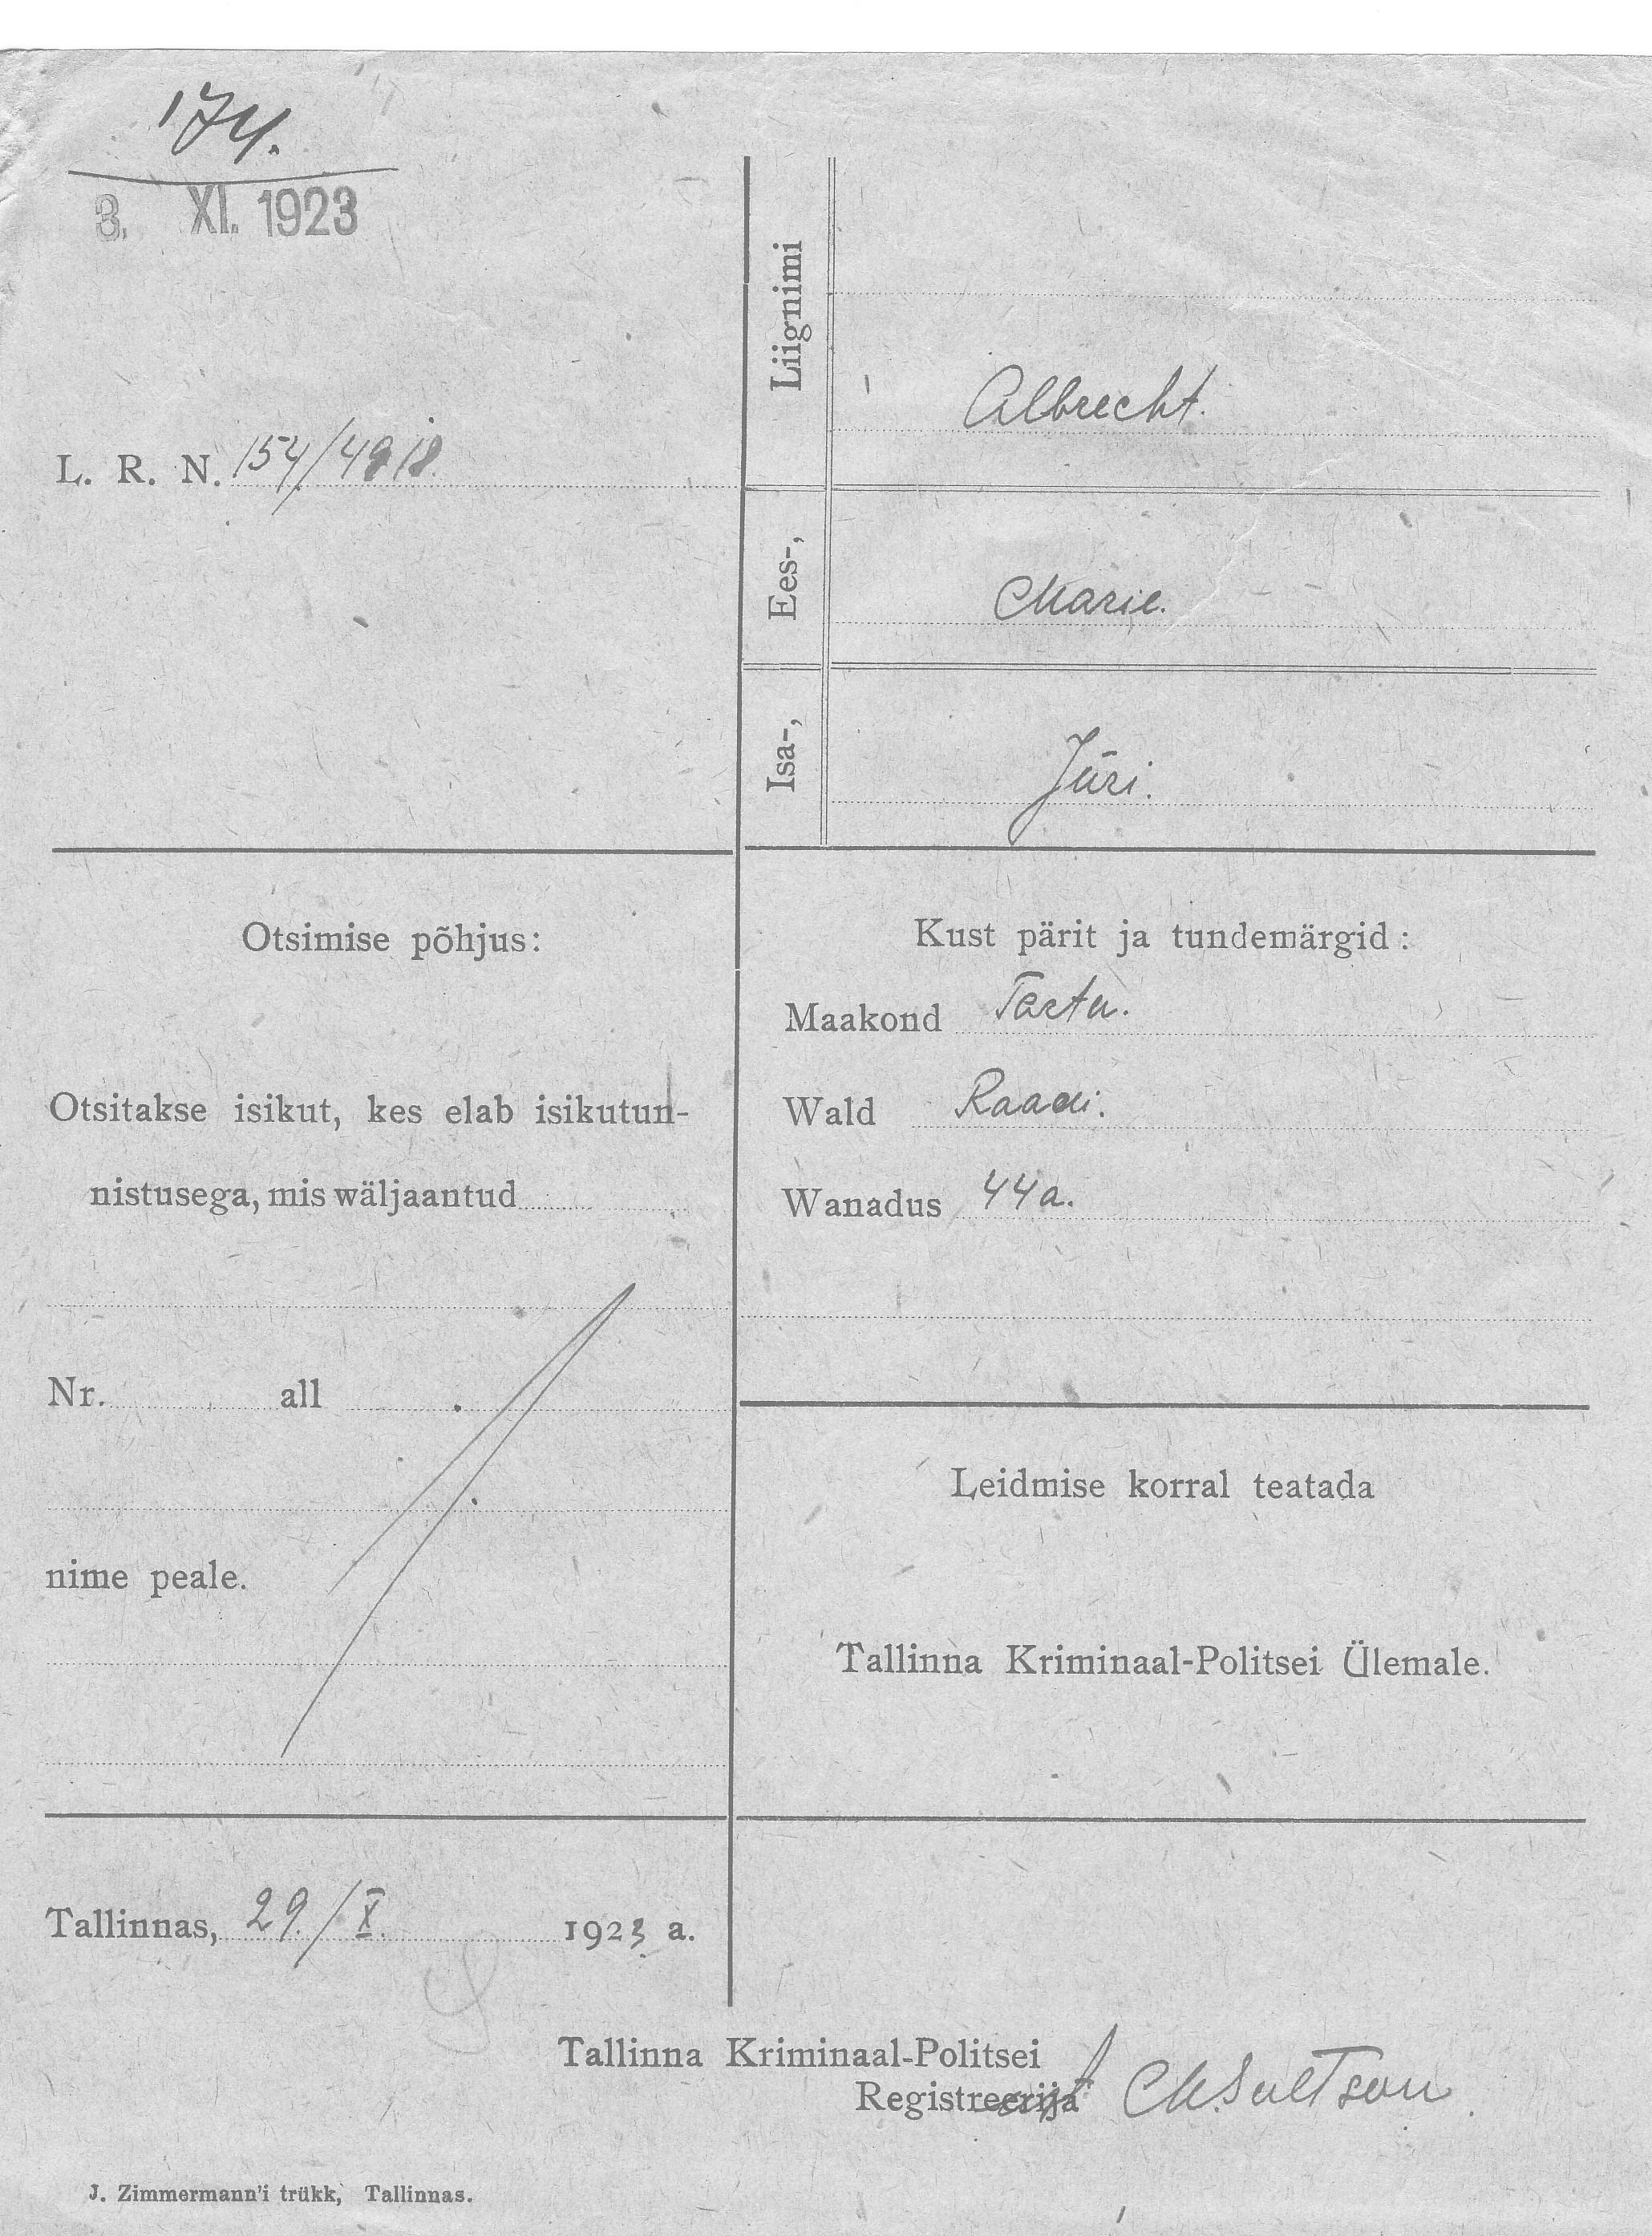 174.
3. XI. 1923
L. R. N. 154/4918
Liignimi
Albrecht.
Ees-,
Marie.
Isa-,
Jüri.
Otsimise põhjus:
Otsitakse isikut, kes elab isikutun-
nistusega, mis wäljaantud
Nr. all
nime peale.
Kust pärit ja tundemärgid:
Maakond Tartu.
Wald Raadi.
Wanadus 44 a.
Leidmise korral teatada
Tallinna Kriminaal-Politsei Ülemale.
Tallinnas, 29./X. 1923 a.
Tallinna Kriminaal-Politsei
Registreerija
J. Zimmermann'i trükk, Tallinnas.